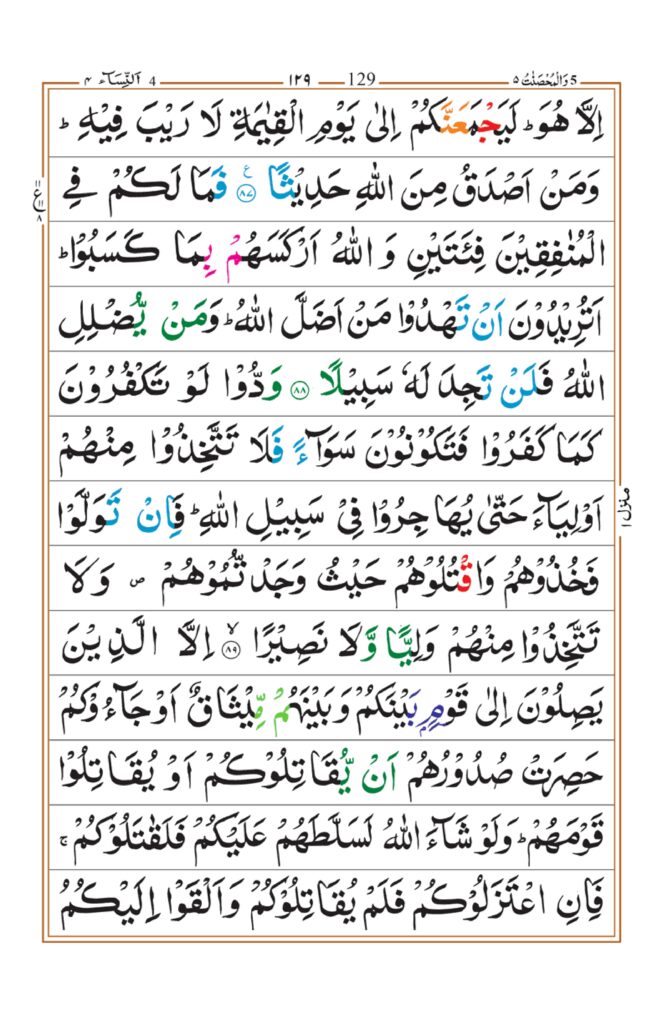 5 وَالْمُحْصَنٰتُ ٥ 129 ١٢٩ 4 اَلنِّسَآء ٤
اِلَّا هُوَ ؕ لَيَجْمَعَنَّكُمْ اِلٰى يَوْمِ الْقِيٰمَةِ لَا رَيْبَ فِيْهِ ؕ
وَمَنْ اَصْدَقُ مِنَ اللّٰهِ حَدِيْثًا ۧ ﴿٨٧﴾ فَمَا لَكُمْ فِي
ع ١١ ٨
الْمُنٰفِقِيْنَ فِئَتَيْنِ وَ اللّٰهُ اَرْكَسَهُمْ بِمَا كَسَبُوْا ؕ
اَتُرِيْدُوْنَ اَنْ تَهْدُوْا مَنْ اَضَلَّ اللّٰهُ ؕ وَمَنْ يُّضْلِلِ
اللّٰهُ فَلَنْ تَجِدَ لَهٗ سَبِيْلًا ﴿٨٨﴾ وَدُّوْا لَوْ تَكْفُرُوْنَ
كَمَا كَفَرُوْا فَتَكُوْنُوْنَ سَوَآءً فَلَا تَتَّخِذُوْا مِنْهُمْ
اَوْلِيَآءَ حَتّٰى يُهَاجِرُوْا فِيْ سَبِيْلِ اللّٰهِ ؕ فَاِنْ تَوَلَّوْا
منزل ١
فَخُذُوْهُمْ وَاقْتُلُوْهُمْ حَيْثُ وَجَدْتُّمُوْهُمْ ۪ وَلَا
تَتَّخِذُوْا مِنْهُمْ وَلِيًّا وَّلَا نَصِيْرًا ۙ ﴿٨٩﴾ اِلَّا الَّذِيْنَ
يَصِلُوْنَ اِلٰى قَوْمٍۭ بَيْنَكُمْ وَبَيْنَهُمْ مِّيْثَاقٌ اَوْ جَآءُوْكُمْ
حَصِرَتْ صُدُوْرُهُمْ اَنْ يُّقَاتِلُوْكُمْ اَوْ يُقَاتِلُوْا
قَوْمَهُمْ ؕ وَلَوْ شَآءَ اللّٰهُ لَسَلَّطَهُمْ عَلَيْكُمْ فَلَقٰتَلُوْكُمْ ۚ
فَاِنِ اعْتَزَلُوْكُمْ فَلَمْ يُقَاتِلُوْكُمْ وَاَلْقَوْا اِلَيْكُمُ